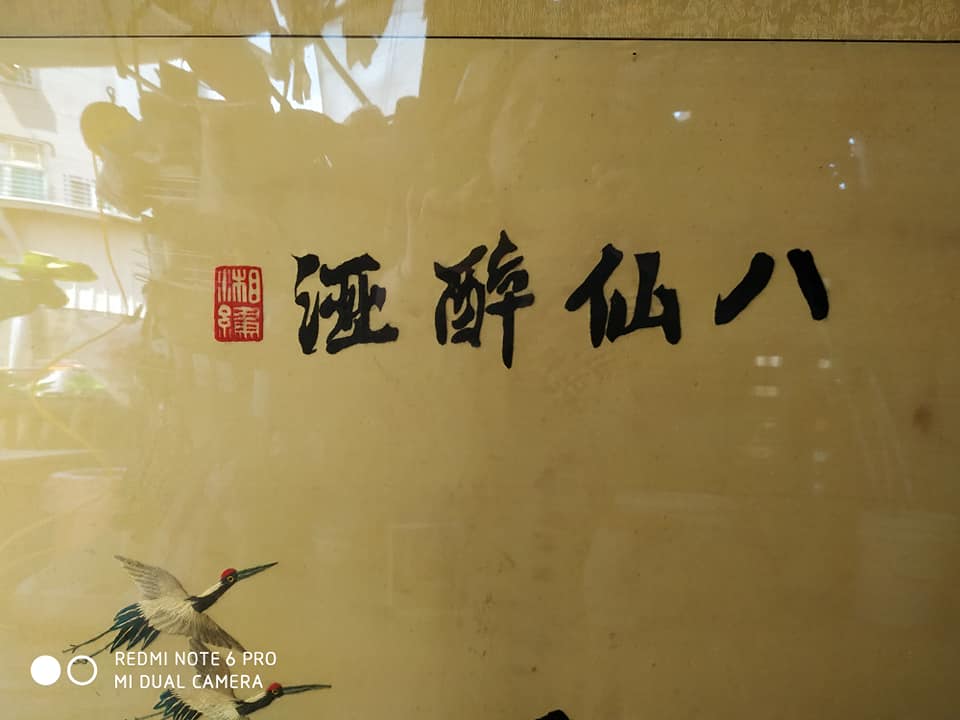 八仙醉酒
湘繡
REDMI NOTE 6 PRO
MI DUAL CAMERA